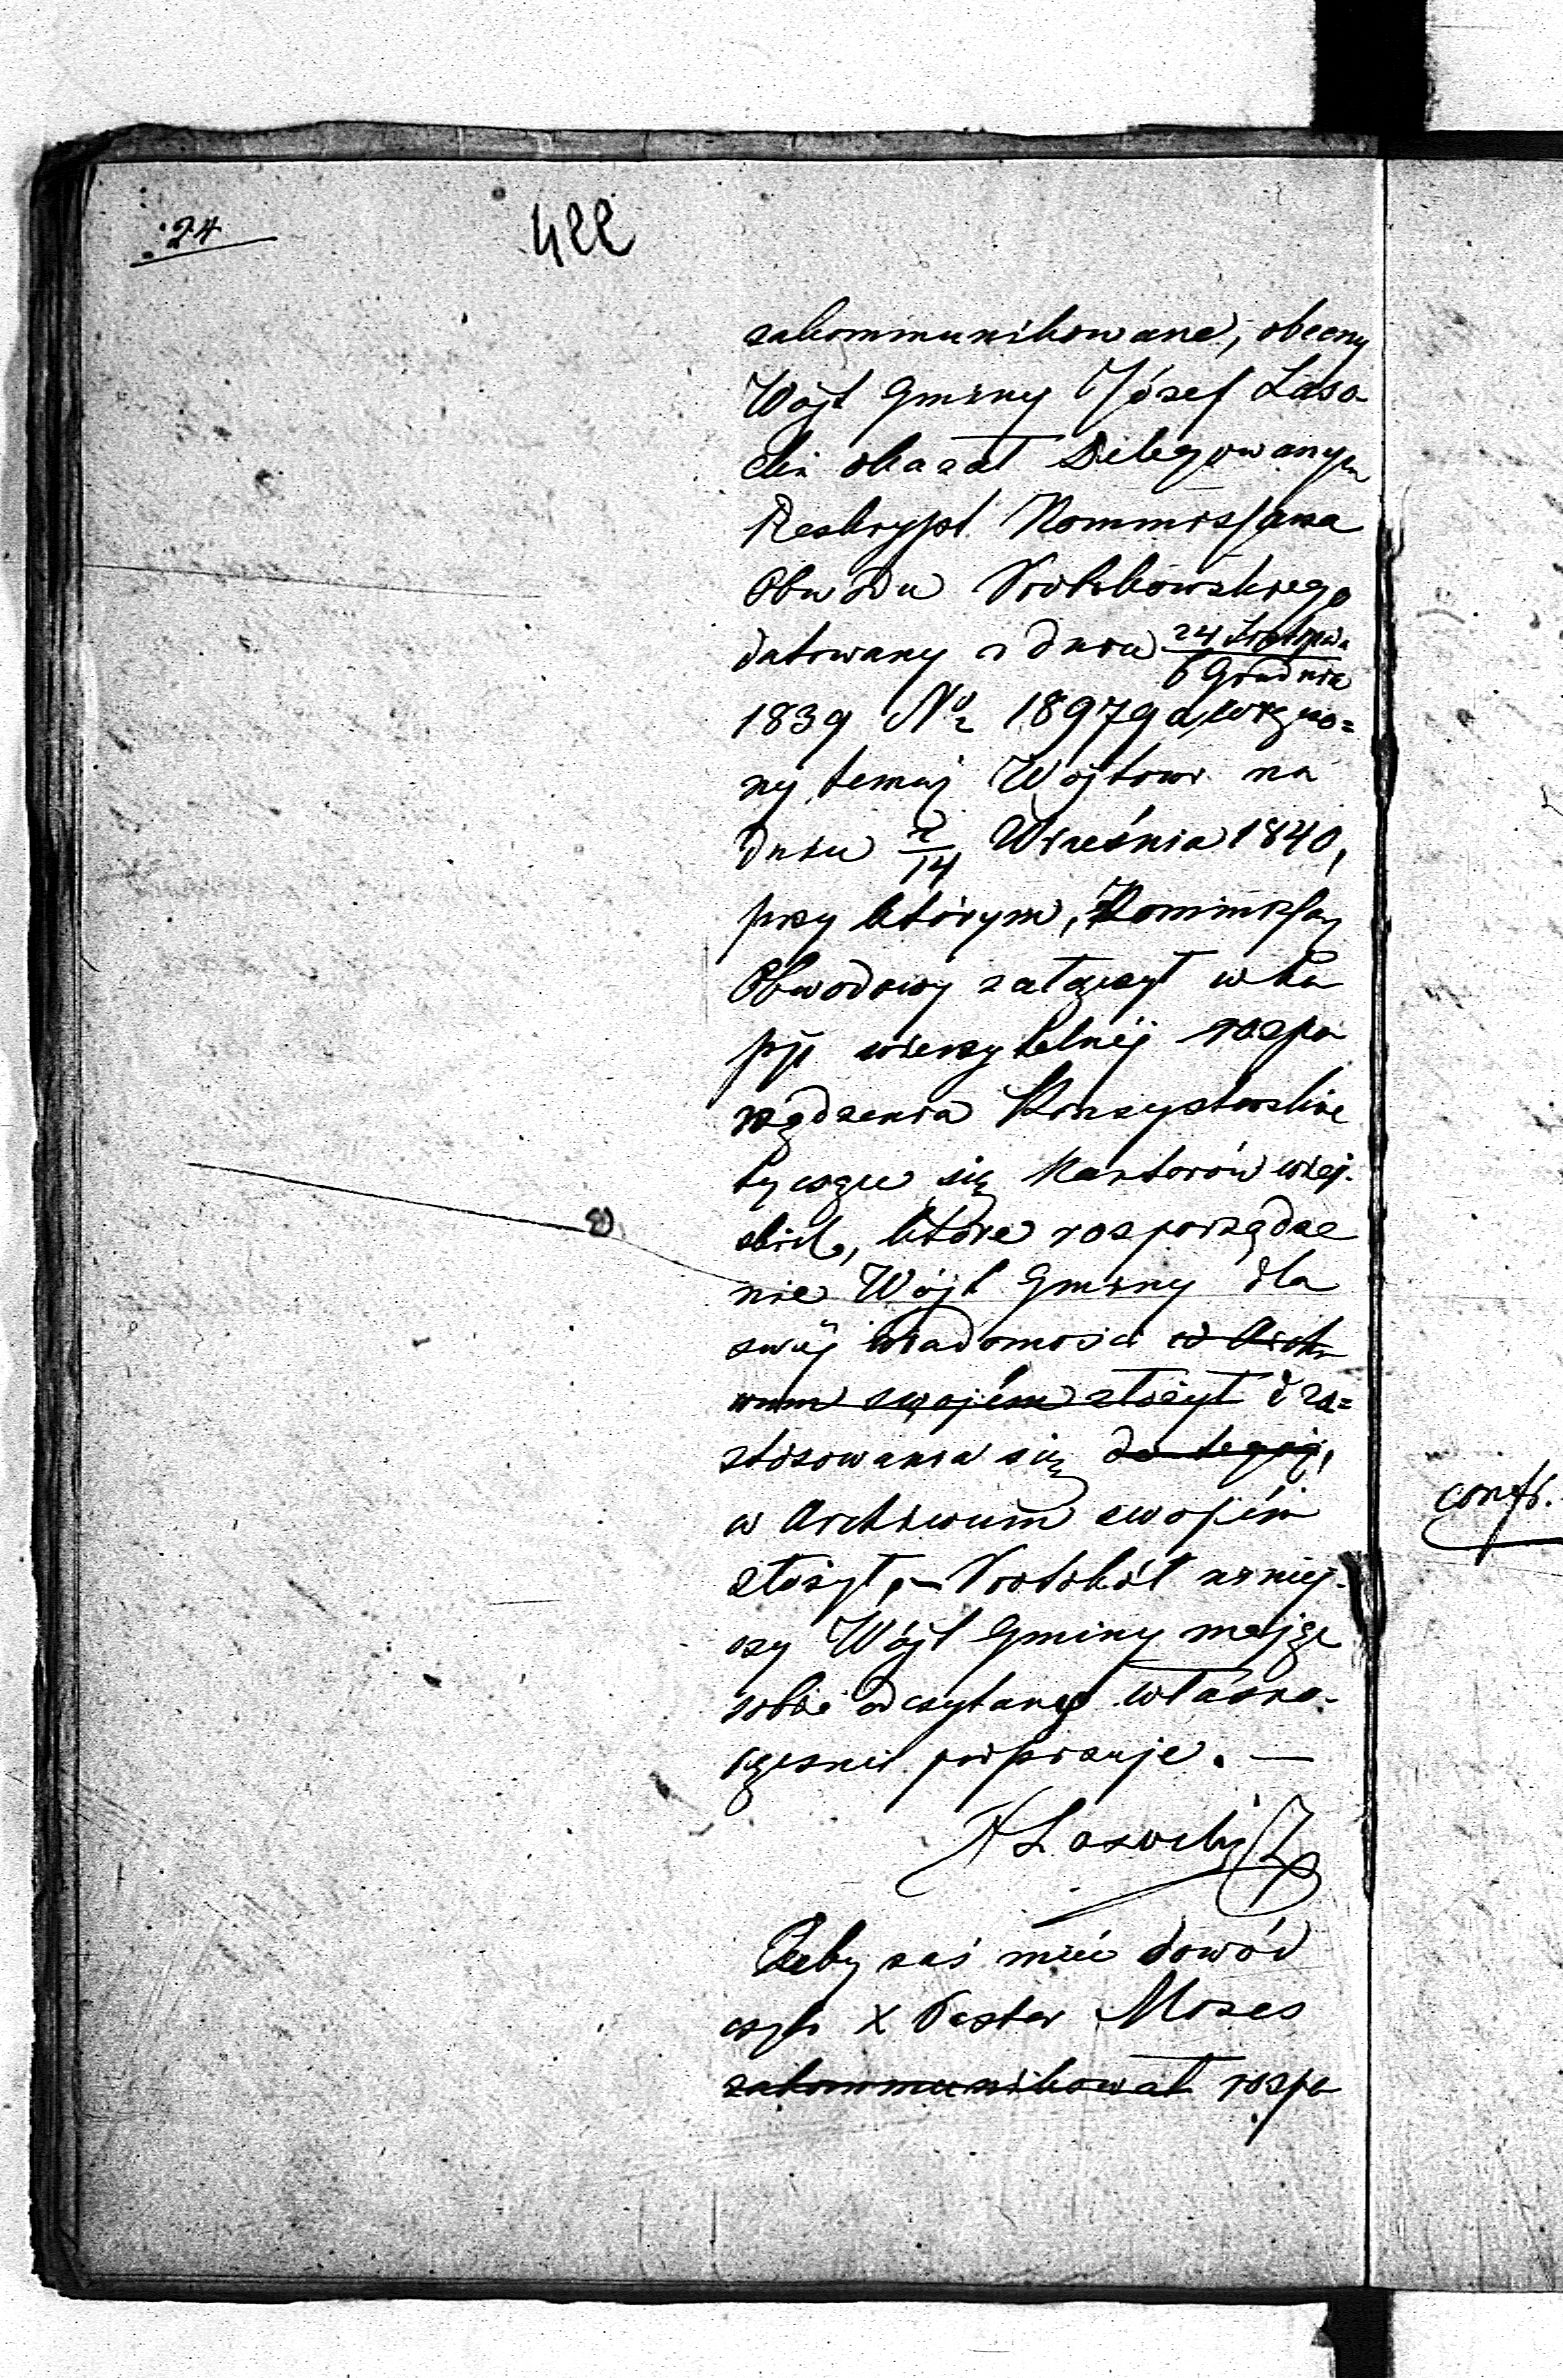 24
422
zakommunikowane, obecny
Wójt Gminy Józef Laso
cki okazał Delegowanym
Reskrypt Kommissarza
Obwodu Piotrkowskiego
datowany z dnia 24 Listopada
6 Grudnia
1839 No 18979 a, wręczo=
ny temuż Wójtowi na
dniu 2/14 Września 1840,
przy którym, Kommissarz
Obwodowy załączył w ko
pji wierzytelnéj rozpo
rządzenia Konsystorskie
tyczące się Kantorów wiej-
skich, które rozporządze
nie Wójt Gminy dla
swéj wiadomości w Archi
wum swojém złożył i za=
stósowania się do tegoż,
w Archiwum swojém
złożył, – Protokół niniej-
szy Wójt Gminy mając
sobie odczytany własno-
ręcznie podpisuje. —
Lasocki
Żeby zaś mieć dowód
czyli X Pastor Moses
zakommunikował rozpo
confr.